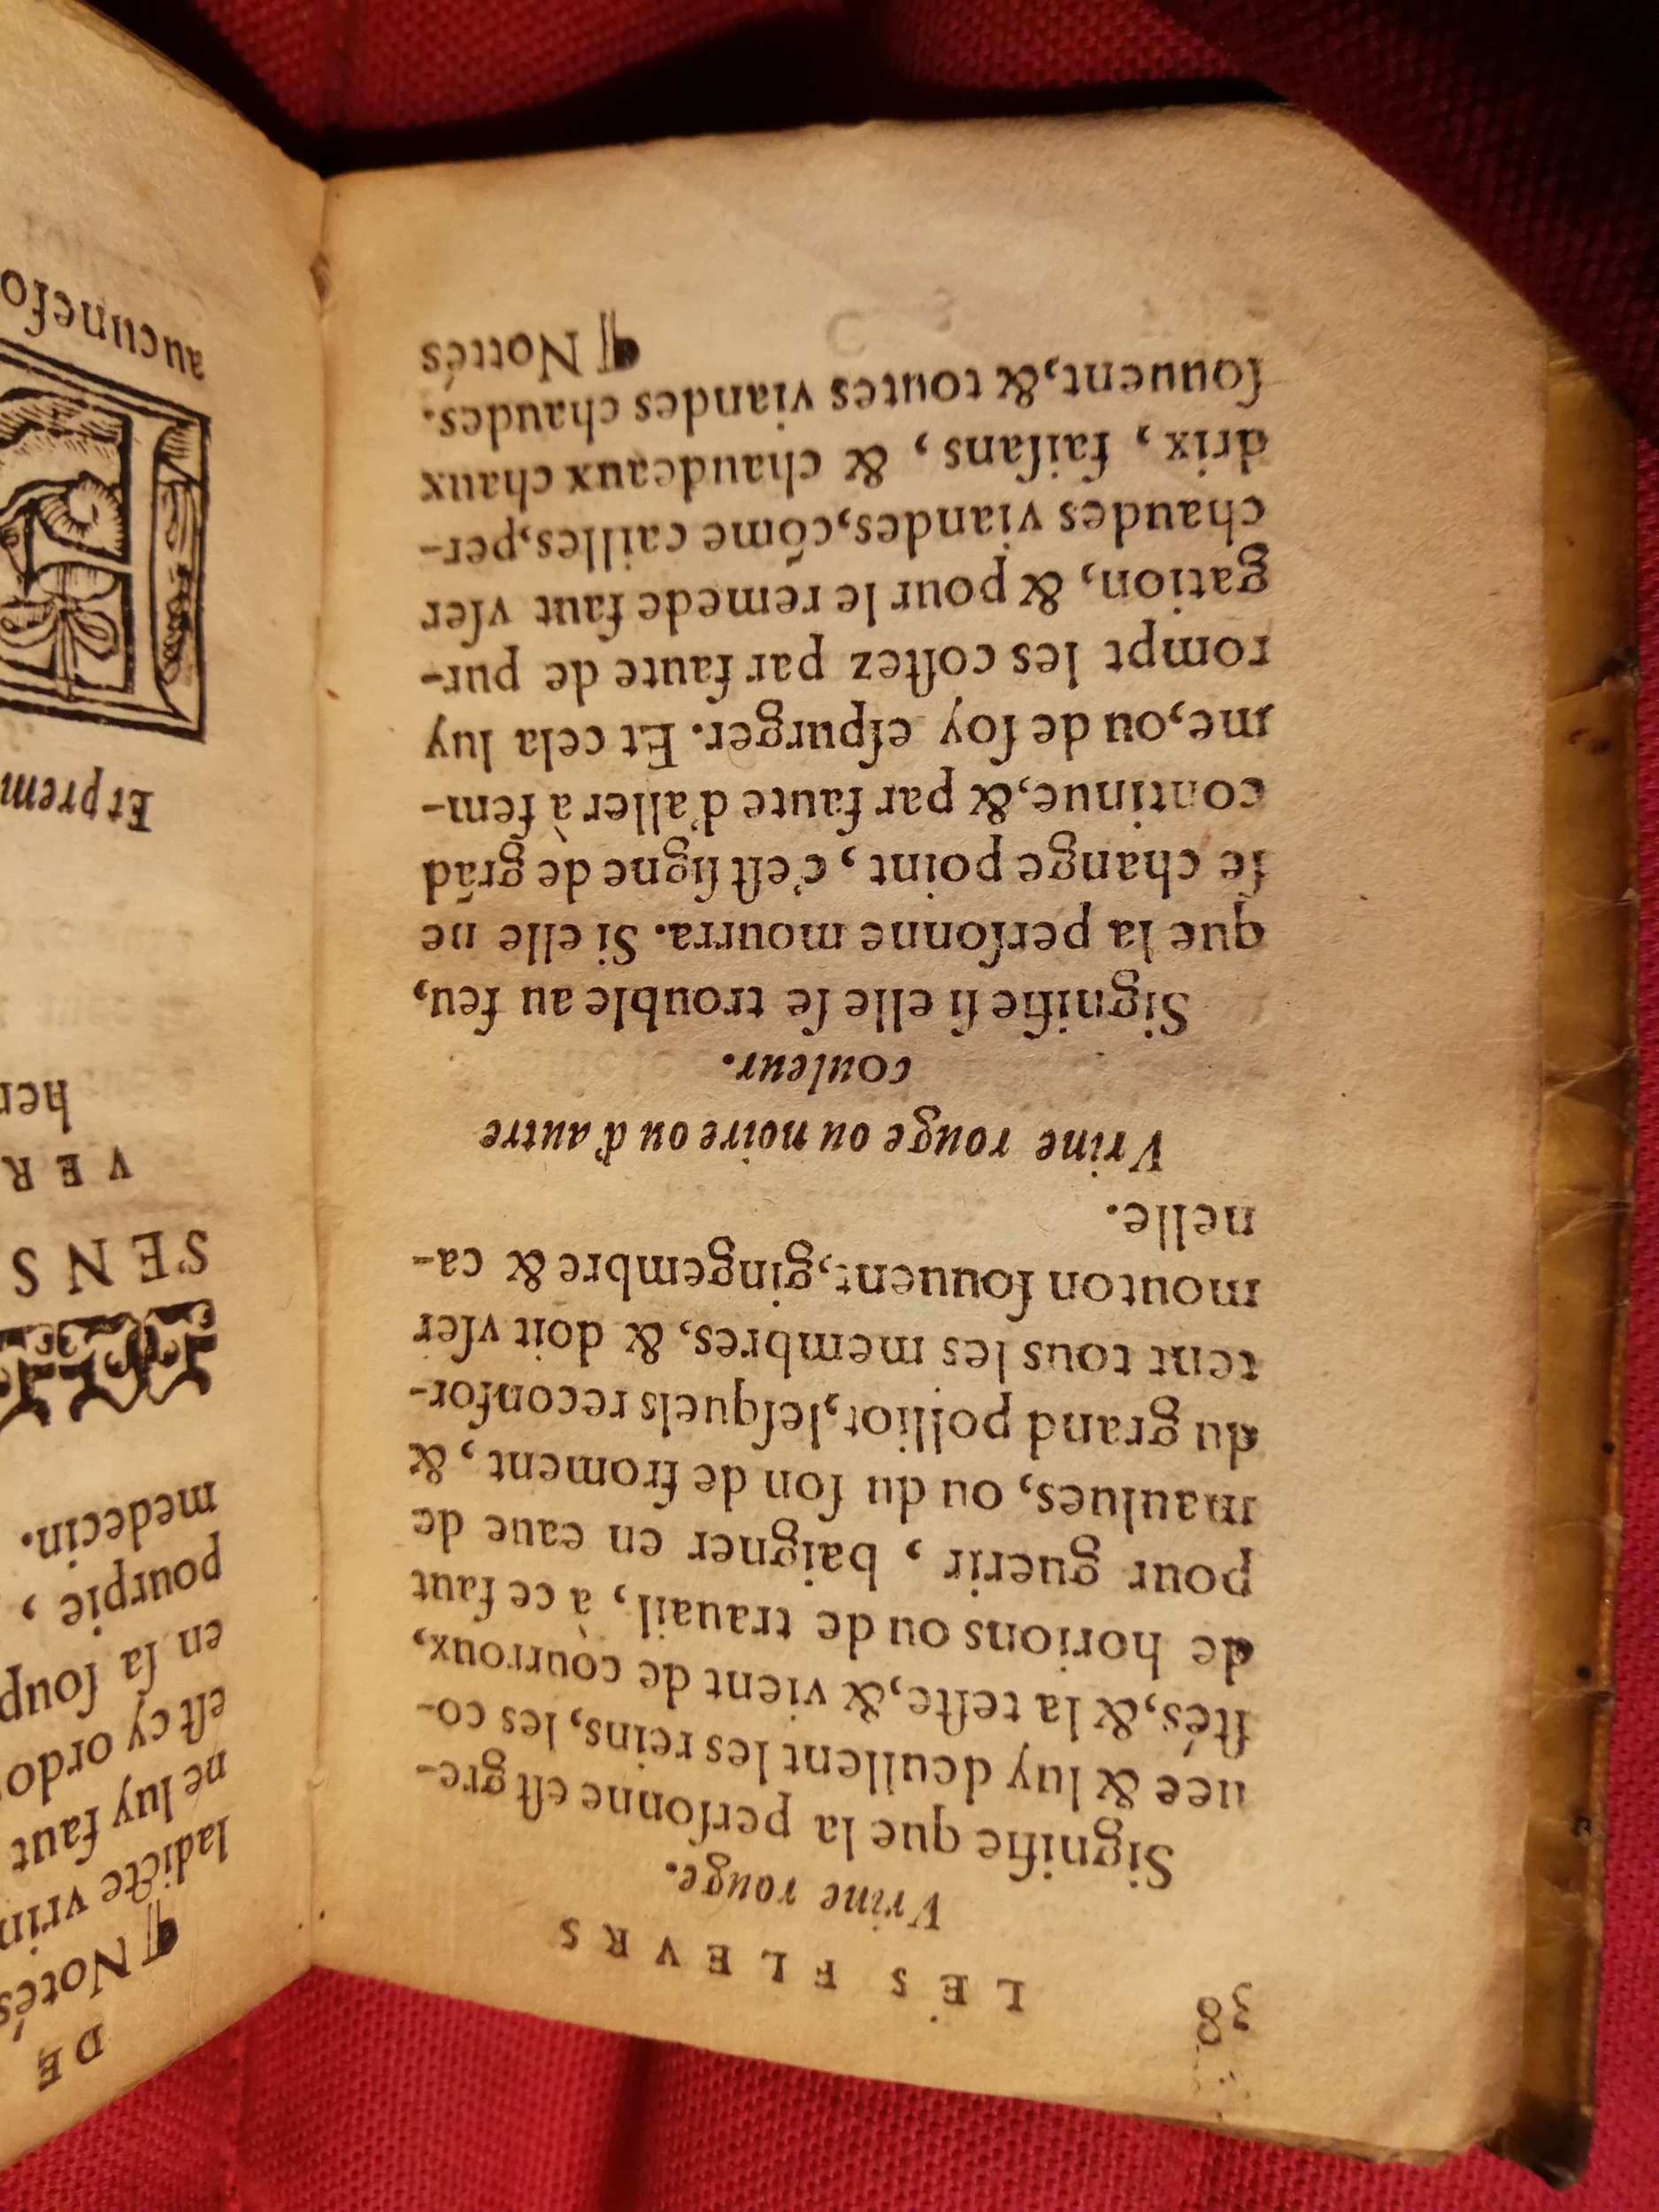 38
LES FLEVRS
Vrine rouge.
Signifie que la perſonne eſt gre-
uee & luy deullent les reins, les co-
ſtés, & la teſte, & vient de courroux,
de horions ou de trauail, à ce faut
pour guerir, baigner en eaue de
maulues, ou du ſon de froment, &
du grand polliot, leſquels reconfor-
tent tous les membres, & doit vſer
mouton ſouuent, gingembre & ca-
nelle.
Vrine rouge ou noire ou d'autre
couleur.
Signifie ſi elle ſe trouble au feu,
que la perſonne mourra. Si elle ne
ſe change point, c'eſt ſigne de grãd
continue, & par faute d'aller à fem-
me, ou de ſoy eſpurger. Et cela luy
rompt les coſtez par faute de pur-
gation, & pour le remede faut vſer
chaudes viandes, cõme cailles, per-
drix, faiſans, & chaudeaux chaux
ſouuent, & toutes viandes chaudes.
¶ Nottés
DE
¶ Notés
ladicte vrin
ne luy faut
eſt cy ordo
en ſa ſoup
pourpié,
medecin.
S'ENS
VER
her
Et prem
aucunefo